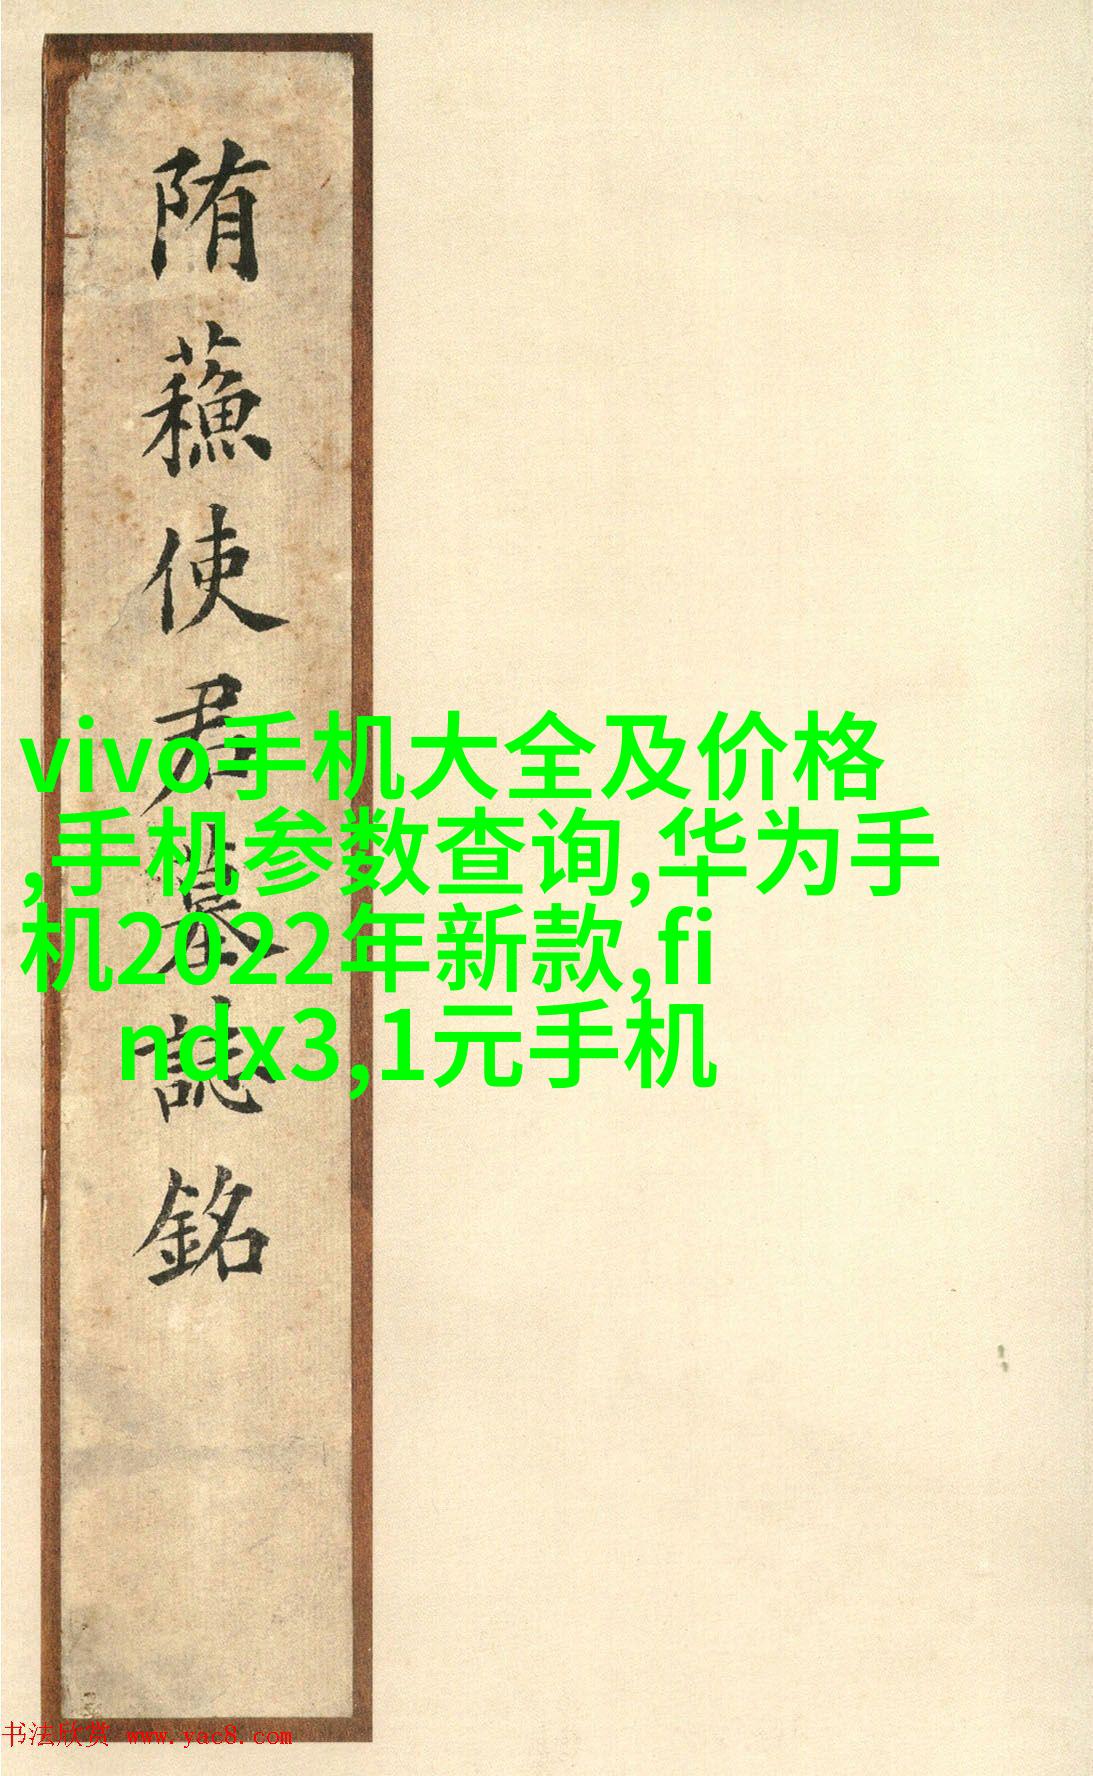 隋蘓使君墓誌銘
vivo手机大全及价格
,手机参数查询,华为手
机2022年新款,fi
ndx3,1元手机
书法欣赏 www.yac8.com